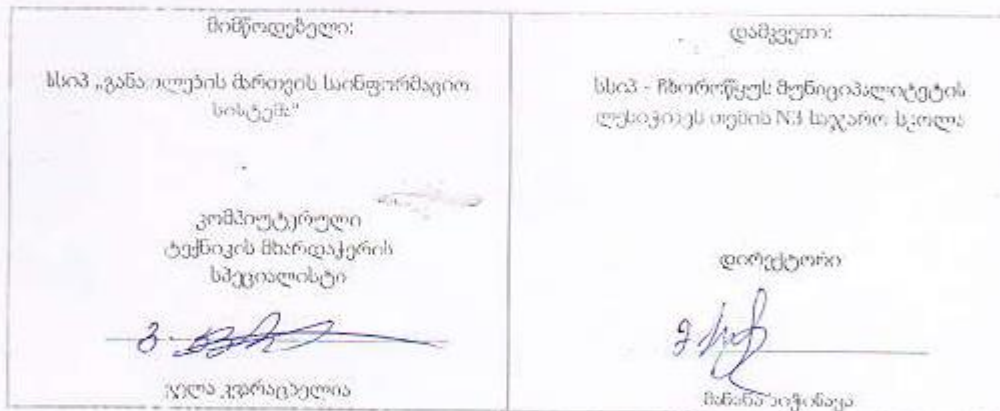 მიმწოდებელი:
სსიპ „განათლების მართვის საინფორმაციო
სისტემა“
კომპიუტერული
ტექნიკის მხარდაჭერის
სპეციალისტი
გელა კვარაცხელია
დამკვეთი:
სსიპ - ჩხოროწყუს მუნიციპალიტეტის
ლესიჭინეს თემის N3 საჯარო სკოლა
დირექტორი
მანანა